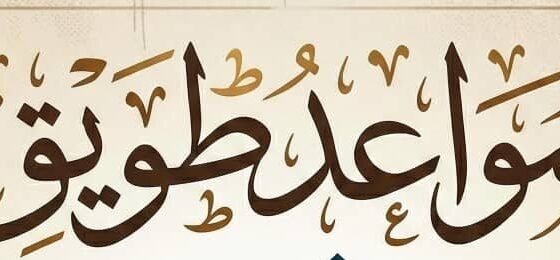 سَوَاعدُ طويق